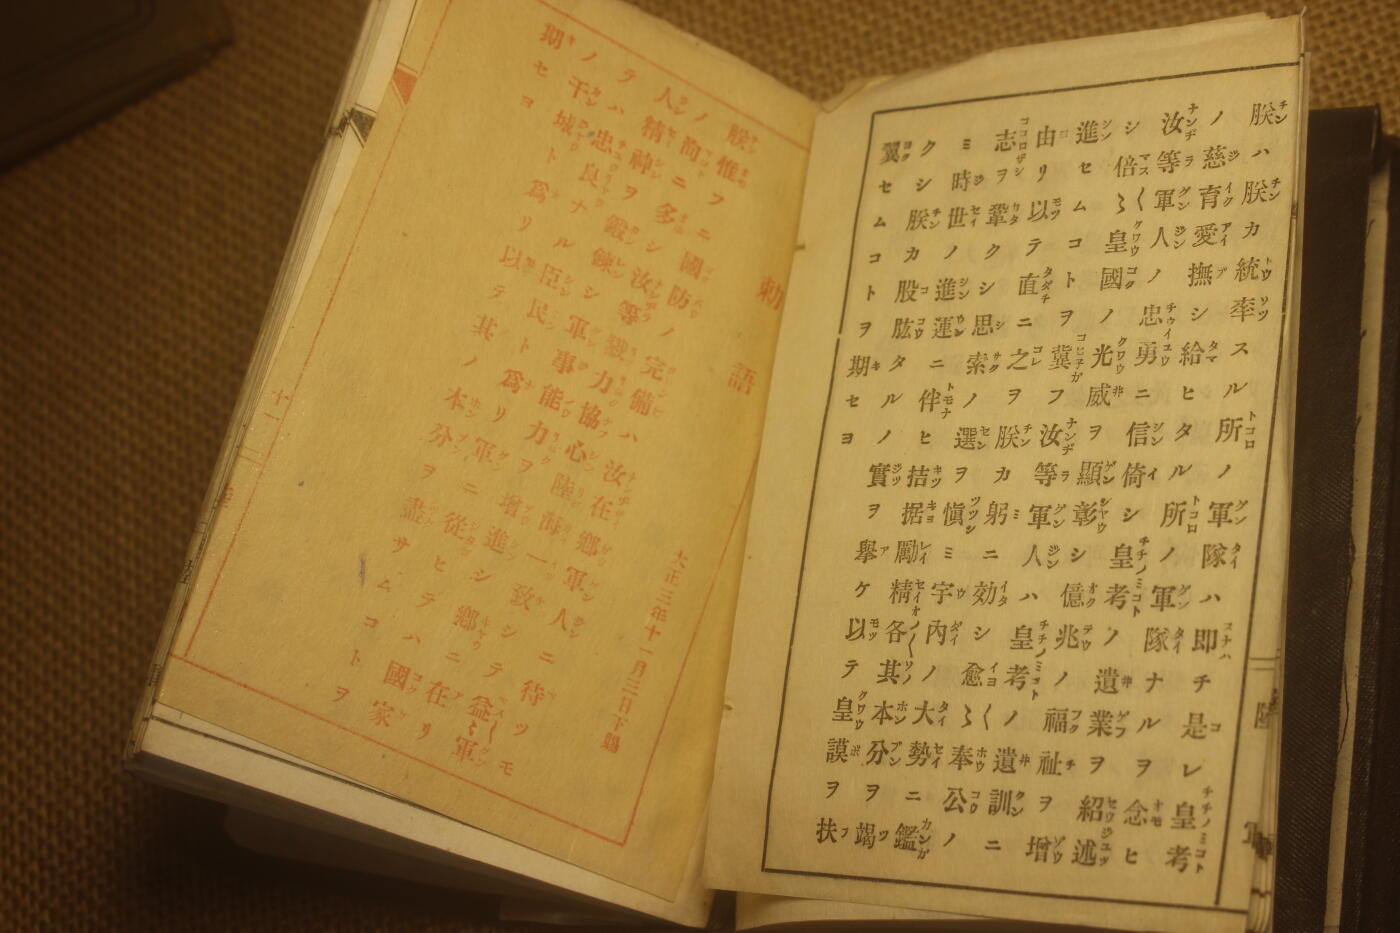 朕ハ朕カ統率スル所ノ軍隊ハ即チ是レ皇考
ノ慈育愛撫シ給ヒタル所ノ軍隊ナルヲ念ヒ
汝等軍人ノ忠勇ニ信倚シ皇考ノ遺業ヲ紹述
シ倍〱皇國ノ光威ヲ顯彰シ億兆ノ福祉ヲ増
進セムコトヲ冀フ汝等軍人ハ皇考ノ遺訓ニ
由リ以テ直ニ之ヲ朕カ躬ニ効シ愈〱奉公ノ
志ヲ鞏クシ思索ノ選ヲ愼ミ宇内ノ大勢ニ鑑
ミ時世ノ進運ニ伴ヒ拮据勵精各其ノ本分ヲ竭
クシ朕カ股肱タルノ實ヲ擧ケ以テ皇謨ヲ扶
翼セムコトヲ期セヨ
勅語
大正三年十一月三日下賜
朕惟フニ國防ノ完備ハ汝在郷軍人ニ待ツモ
ノ洵ニ多シ汝等戮力協心陸海一致シテ益〻軍
人精神ヲ鍛錬シ軍事能力ヲ増進シ郷ニ在リ
テハ忠良ナル臣民ト爲リ軍ニ從ヒテハ國家
ノ干城ト爲リ以テ其ノ本分ヲ盡サムコトヲ
期セヨ
十一